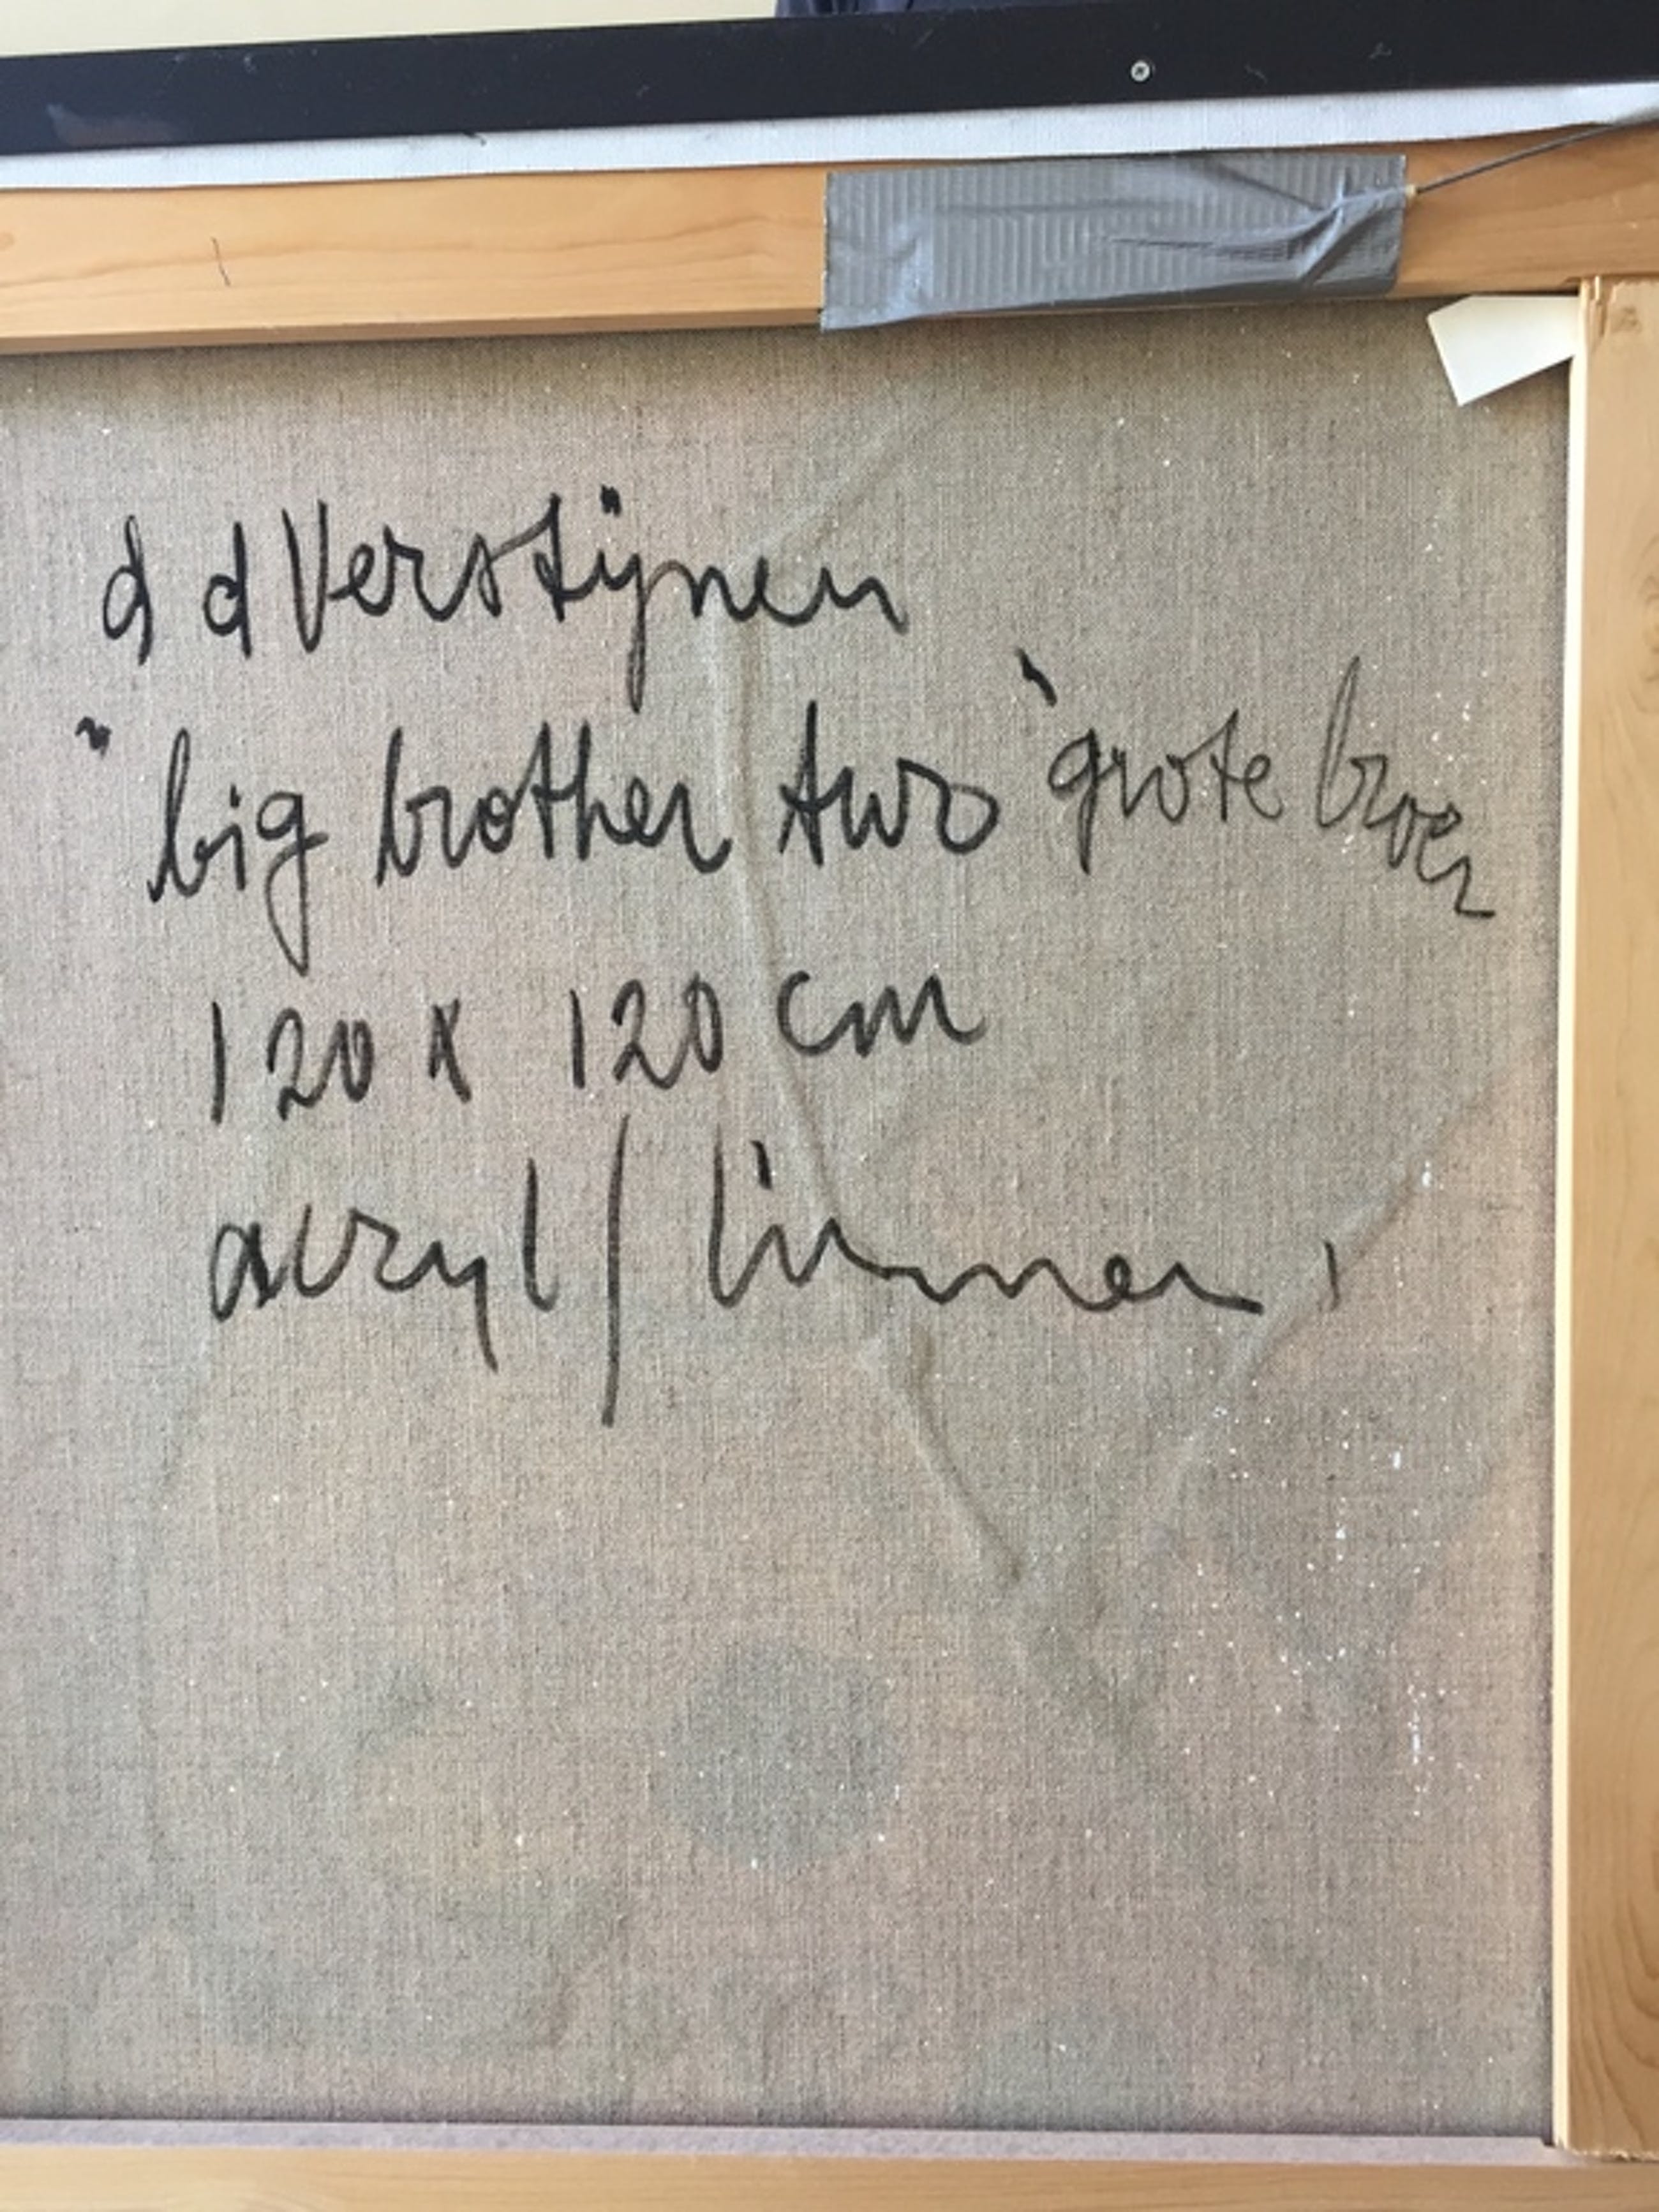 d d Verstijnen
"big brother two" grote broer
120 x 120 cm
acryl/linnen